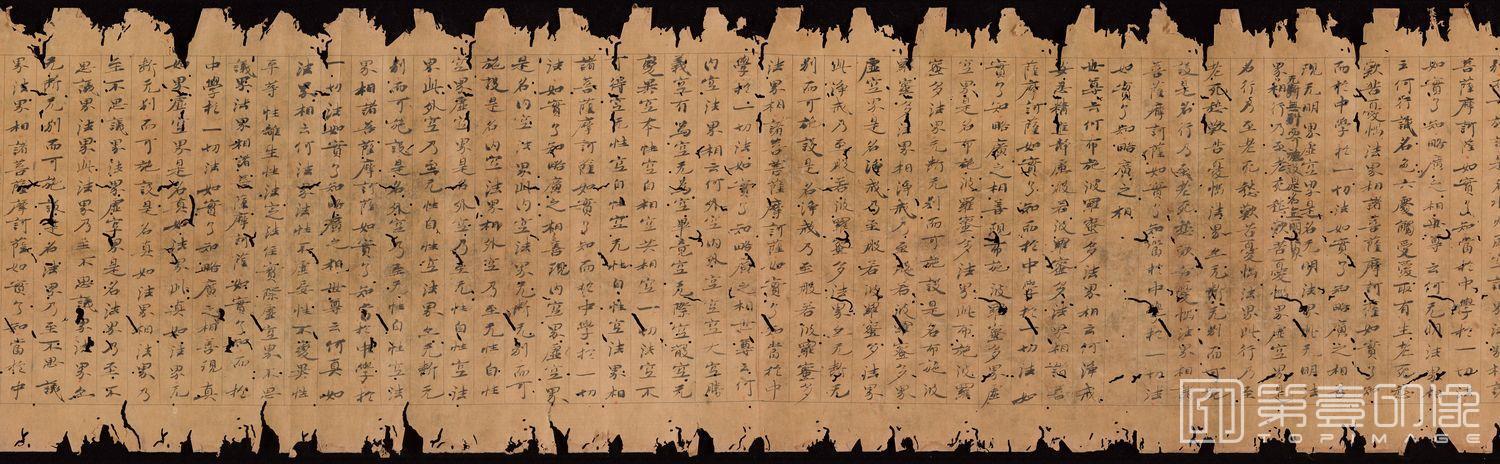 菩薩摩訶薩如實了知當於中學於一切法
如實了知略廣之相世尊云何无明法界相
云何行識名色六處觸受愛取有生老死愁
歎苦憂惱法界相諸菩薩摩訶薩如實了知
而於中學於一切法如實了知略廣之相善
現无明界虛空界是名无明法界此无明法
界无斷无別而可施設是名无明
界相行乃至老死愁歎苦憂惱界虛空界是
名行乃至老死愁歎苦憂惱法界此行乃至
老死愁歎苦憂惱法界亦无斷无別而可施
設是名行乃至老死愁歎苦憂惱法界相諸
菩薩摩訶薩如實了知當於中學於一切法
如實了知略廣之相
世尊云何布施波羅蜜多法界相云何淨戒
安忍精進靜慮般若波羅蜜多法界相諸菩
薩摩訶薩如實了知而於中學於一切法如
實了知略廣之相善現布施波羅蜜多界虛
空界是名布施波羅蜜多法界此布施波羅
蜜多法界无斷无別而可施設是名布施波
羅蜜多法界相淨戒乃至般若波羅蜜多界
虛空界是名淨戒乃至般若波羅蜜多法界
此淨戒乃至般若波羅蜜多法界亦无斷无
別而可施設是名淨戒乃至般若波羅蜜多
法界相諸菩薩摩訶薩如實了知當於中
學於一切法如實了知略廣之相世尊云何
內空法界相云何外空內外空空空大空勝
義空有為空无為空畢竟空无際空散空无
變異空本性空自相空共相空一切法空不
可得空无性空自性空无性自性空法界相
諸菩薩摩訶薩如實了知而於中學於一切
法如實了知略廣之相善現內空界虛空界
是名內空法界此內空法界无斷无別而可
施設是名內空法界相外空乃至无性自性
空界虛空界是名外空乃至无性自性空法
界此外空乃至无性自性空法界亦无斷无
別而可施設是名外空乃至无性自性空法
界相諸菩薩摩訶薩如實了知當於中學於
一切法如實了知略廣之相世尊云何真如
法界相云何法界法性不虛妄性不變異性
平等性離生性法定法住實際虛空界不思
議界法界相諸菩薩摩訶薩如實了知而於
中學於一切法如實了知略廣之相善現真
如界虛空界是名真如法界此真如法界无
斷无別而可施設是名真如法界相法界乃
至不思議界法界虛空界是名法界乃至不
思議界法界此法界乃至不思議界法界亦
无斷无別而可施設是名法界乃至不思議
界法界相諸菩薩摩訶薩如實了知當於中
第壹印象
TOP IMAGE